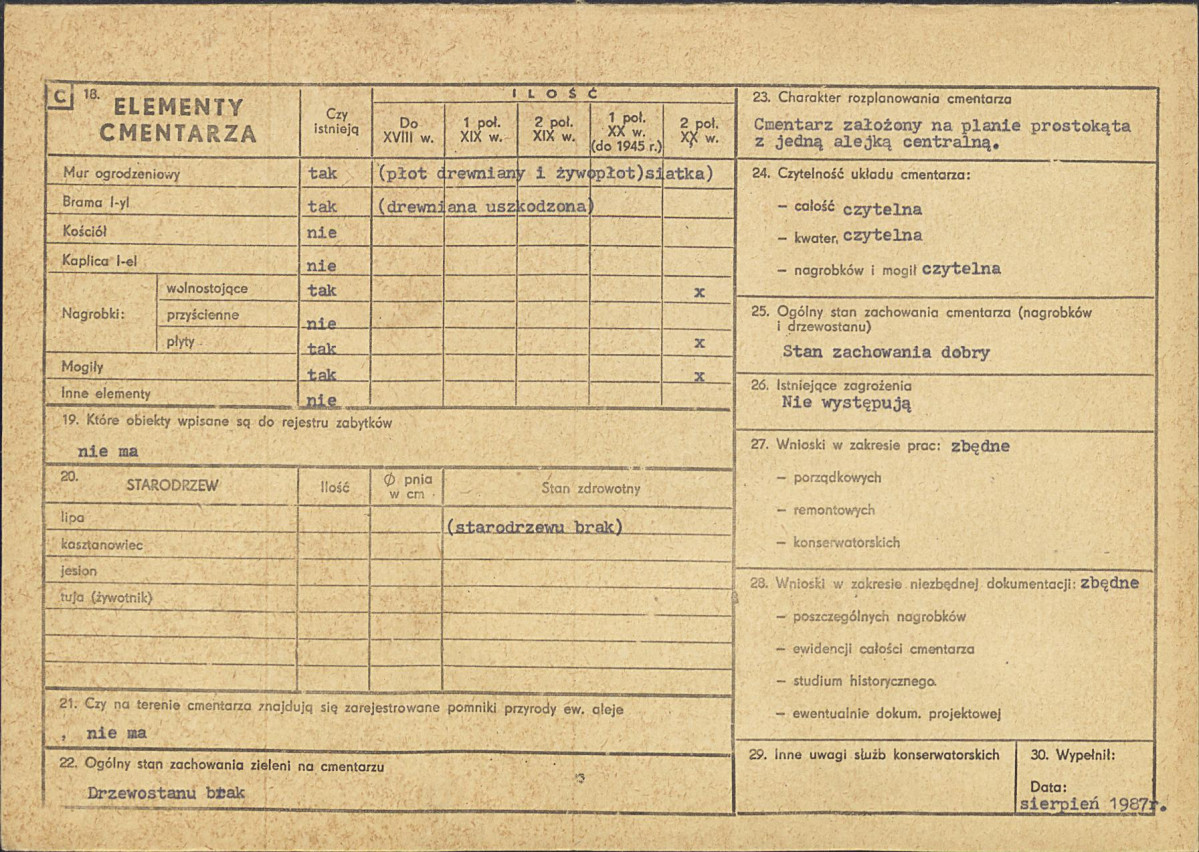 C 18. ELEMENTY CMENTARZA
Czy istnieją
ILOŚĆ
Do XVIII w.
1 poł. XIX w.
2 poł. XIX w.
1 poł. XX w. (do 1945 r.)
2 poł. XX w.
Mur ogrodzeniowy tak (płot drewniany i żywopłot)siatka)
Brama I-yl tak (drewniana uszkodzona)
Kościół nie
Kaplica I-el nie
Nagrobki: wolnostojące tak x
przyścienne nie
płyty tak x
Mogiły tak x
Inne elementy nie
19. Które obiekty wpisane są do rejestru zabytków
nie ma
20. STARODRZEW Ilość Ø pnia w cm Stan zdrowotny
lipa (starodrzewu brak)
kasztanowiec
jesion
tuja (żywotnik)
21. Czy na terenie cmentarza znajdują się zarejestrowane pomniki przyrody ew. aleje
nie ma
22. Ogólny stan zachowania zieleni na cmentarzu
Drzewostanu brak
23. Charakter rozplanowania cmentarza
Cmentarz założony na planie prostokąta
z jedną alejką centralną.
24. Czytelność układu cmentarza:
— całość czytelna
— kwater, czytelna
— nagrobków i mogił czytelna
25. Ogólny stan zachowania cmentarza (nagrobków
i drzewostanu)
Stan zachowania dobry
26. Istniejące zagrożenia
Nie występują
27. Wnioski w zakresie prac: zbędne
— porządkowych
— remontowych
— konserwatorskich
28. Wnioski w zakresie niezbędnej dokumentacji: zbędne
— poszczególnych nagrobków
— ewidencji całości cmentarza
— studium historycznego
— ewentualnie dokum. projektowej
29. Inne uwagi służb konserwatorskich
30. Wypełnił:
Data:
sierpień 1987r.